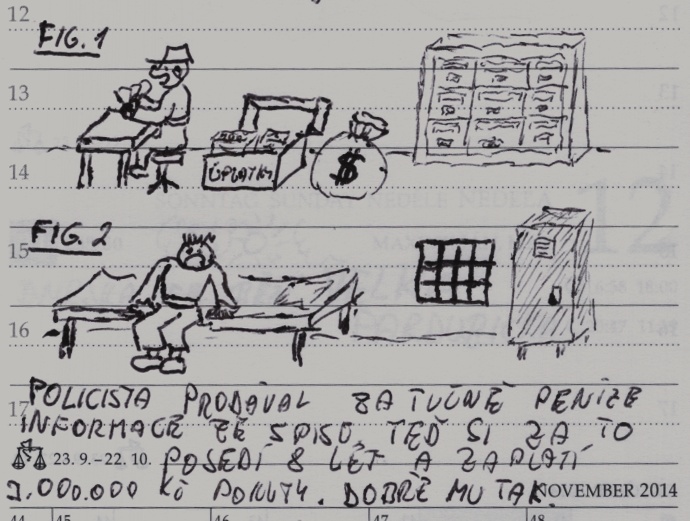 12
FIG. 1
13
ÚPLATKY
$
14
SONNTAG SUNDAY NEDELE NEDEĽA
12
FIG. 2
15
16
POLICISTA PRODÁVAL ZA TUČNÉ PENÍZE
17
INFORMACE ZE SPISŮ TEĎ SI ZA TO
23. 9. – 22. 10. POSEDÍ 8 LET A ZAPLATÍ
1.000.000 Kč POKUTY. DOBŘE MU TAK.
NOVEMBER 2014
44 45 46 47 48